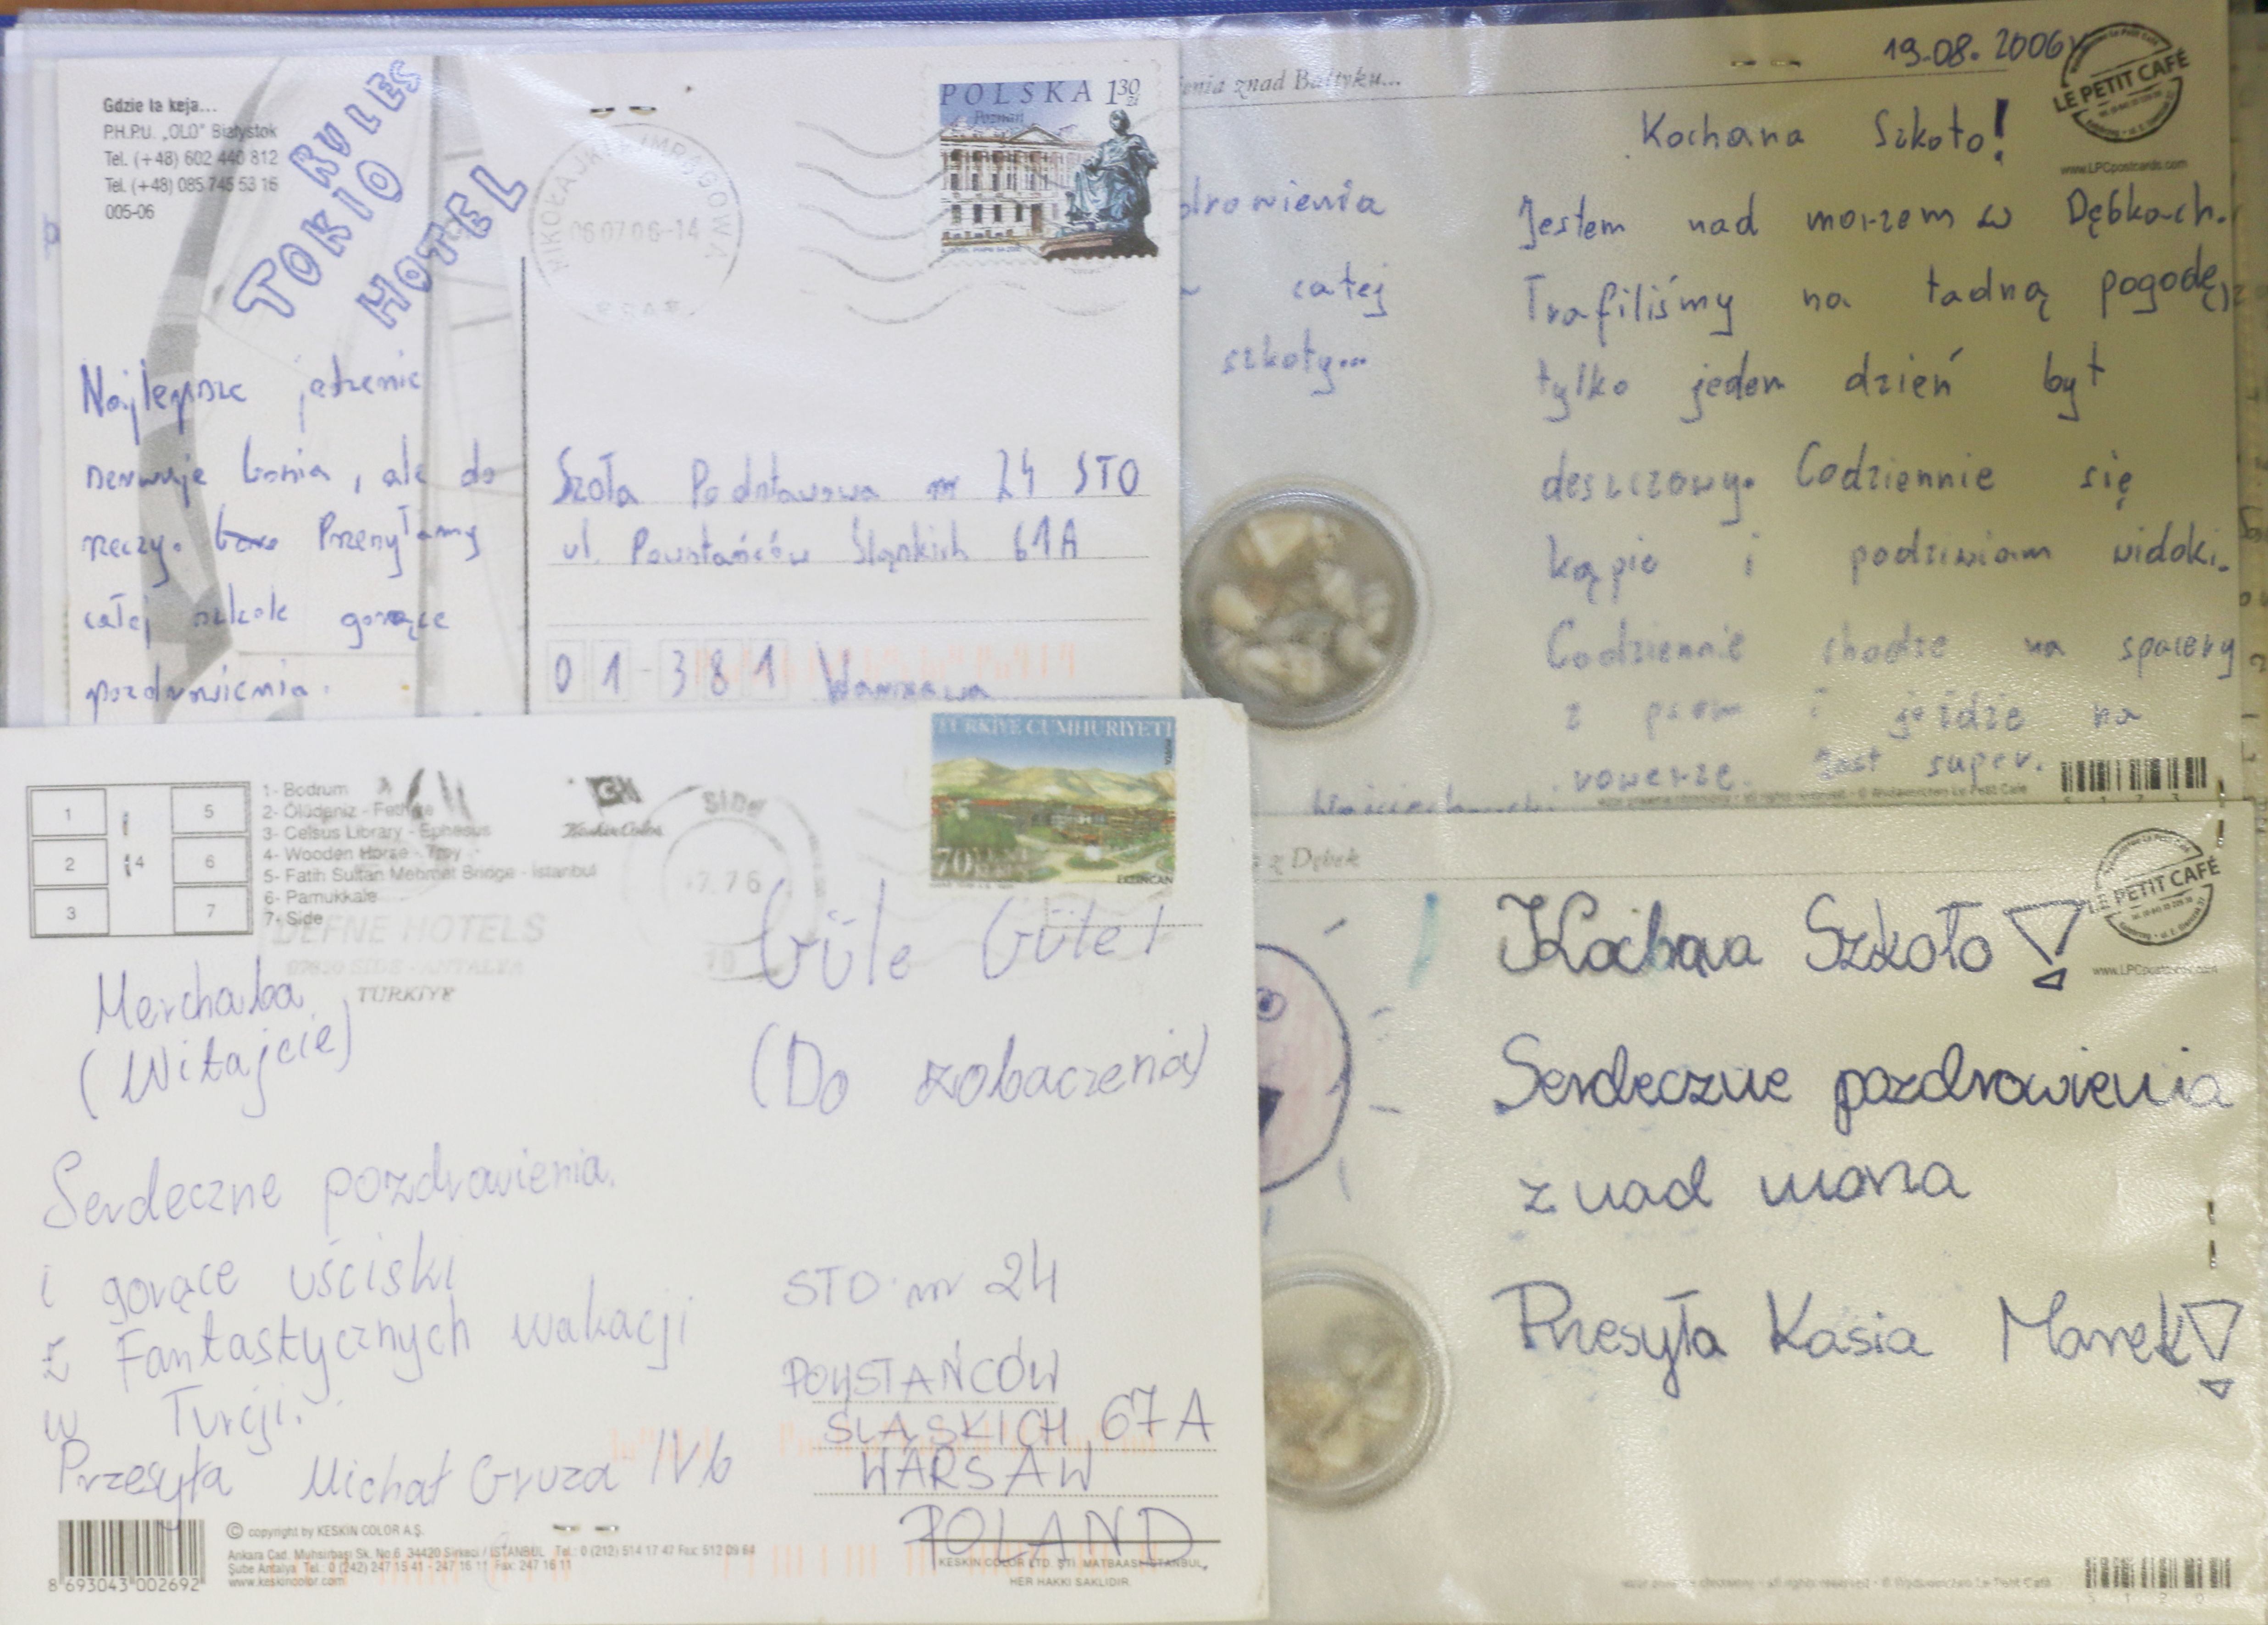 Gdzie ta keja...
P.H.P.U. „OLO” Białystok
Tel. (+48) 602 440 812
Tel. (+48) 085 745 53 16
005-06
TOKIO
HOTEL
RULES
Najlepsze jedzenie
serwuje Gosia, ale do
rzeczy. Przesyłamy
całej szkole gorące
pozdrowienia.
MIKOŁAJKI K/MRĄGOWA
06 07 06-14
POLSKA 1 30 zł
Poznań
Szoła Podstawowa nr 24 STO
ul. Powstańców Śląskich 61A
01-381 Warszawa
enia znad Bałtyku...
drowienia
całej
szkoły...
19.08.2006r
LE PETIT CAFÉ
www.LPCpostcards.com
Kochana Szkoło!
Jestem nad morzem w Dębkach.
Trafiliśmy na ładną pogodę,
tylko jeden dzień był
deszczowy. Codziennie się
kąpie i podziwiam widoki.
Codziennie chodze na spacery
z psem i jeżdże na
rowerze. Jest super.
all rights reserved • © Wydawnictwo Le Petit Café
1
2
3
4
5
6
7
1- Bodrum
2- Ölüdeniz - Fethiye
3- Celsus Library - Ephesus
4- Wooden Horse - Troy
5- Fatih Sultan Mehmet Bridge - İstanbul
6- Pamukkale
7- Side
Keskin Color
DEFNE HOTELS
SIDE - ANTALYA
TÜRKİYE
SIDE
TÜRKİYE CUMHURİYETİ
70
ERZİNCAN
Merchaba
(Witajcie)
Serdeczne pozdrowienia
i gorące uściski
z Fantastycznych wakacji
w Turcji.
Przesyła Michał Gruza IV b
Güle Güle!
(Do zobaczenia)
STO nr 24
POWSTAŃCÓW
ŚLĄSKICH 67A
WARSAW
POLAND
8 693043 002692
© copyright by KESKİN COLOR A.Ş.
Ankara Cad. Muhsirbaşı Sk. No 6 34420 Sirkeci / İSTANBUL Tel.: 0 (212) 514 17 47 Fax: 512 09 64
Şube Antalya Tel.: 0 (242) 247 15 41 - 247 16 11 Fax: 247 16 11
www.keskincolor.com
KESKİN COLOR LTD. ŞTİ. MATBAASI İSTANBUL
HER HAKKI SAKLIDIR
z Dębek
LE PETIT CAFÉ
Kochana Szkoło!
Serdeczne pozdrowienia
znad morza
Przesyła Kasia Marek!
all rights reserved • © Wydawnictwo Le Petit Café